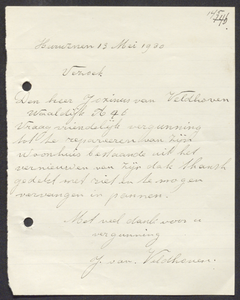 Heusden 13 Mei 1930
Verzoek
Den heer J. van Veldhoven
Waaldijk A 48
Vraag vriendelijk vergunning
tot he repareeren van zijn
woonhuis bestaande uit het
vernieuwen van zijn dak thans
gedekt met riet en te mogen
vervangen in pannen.
Met veel dank voor u
vergunning
J. van Veldhoven